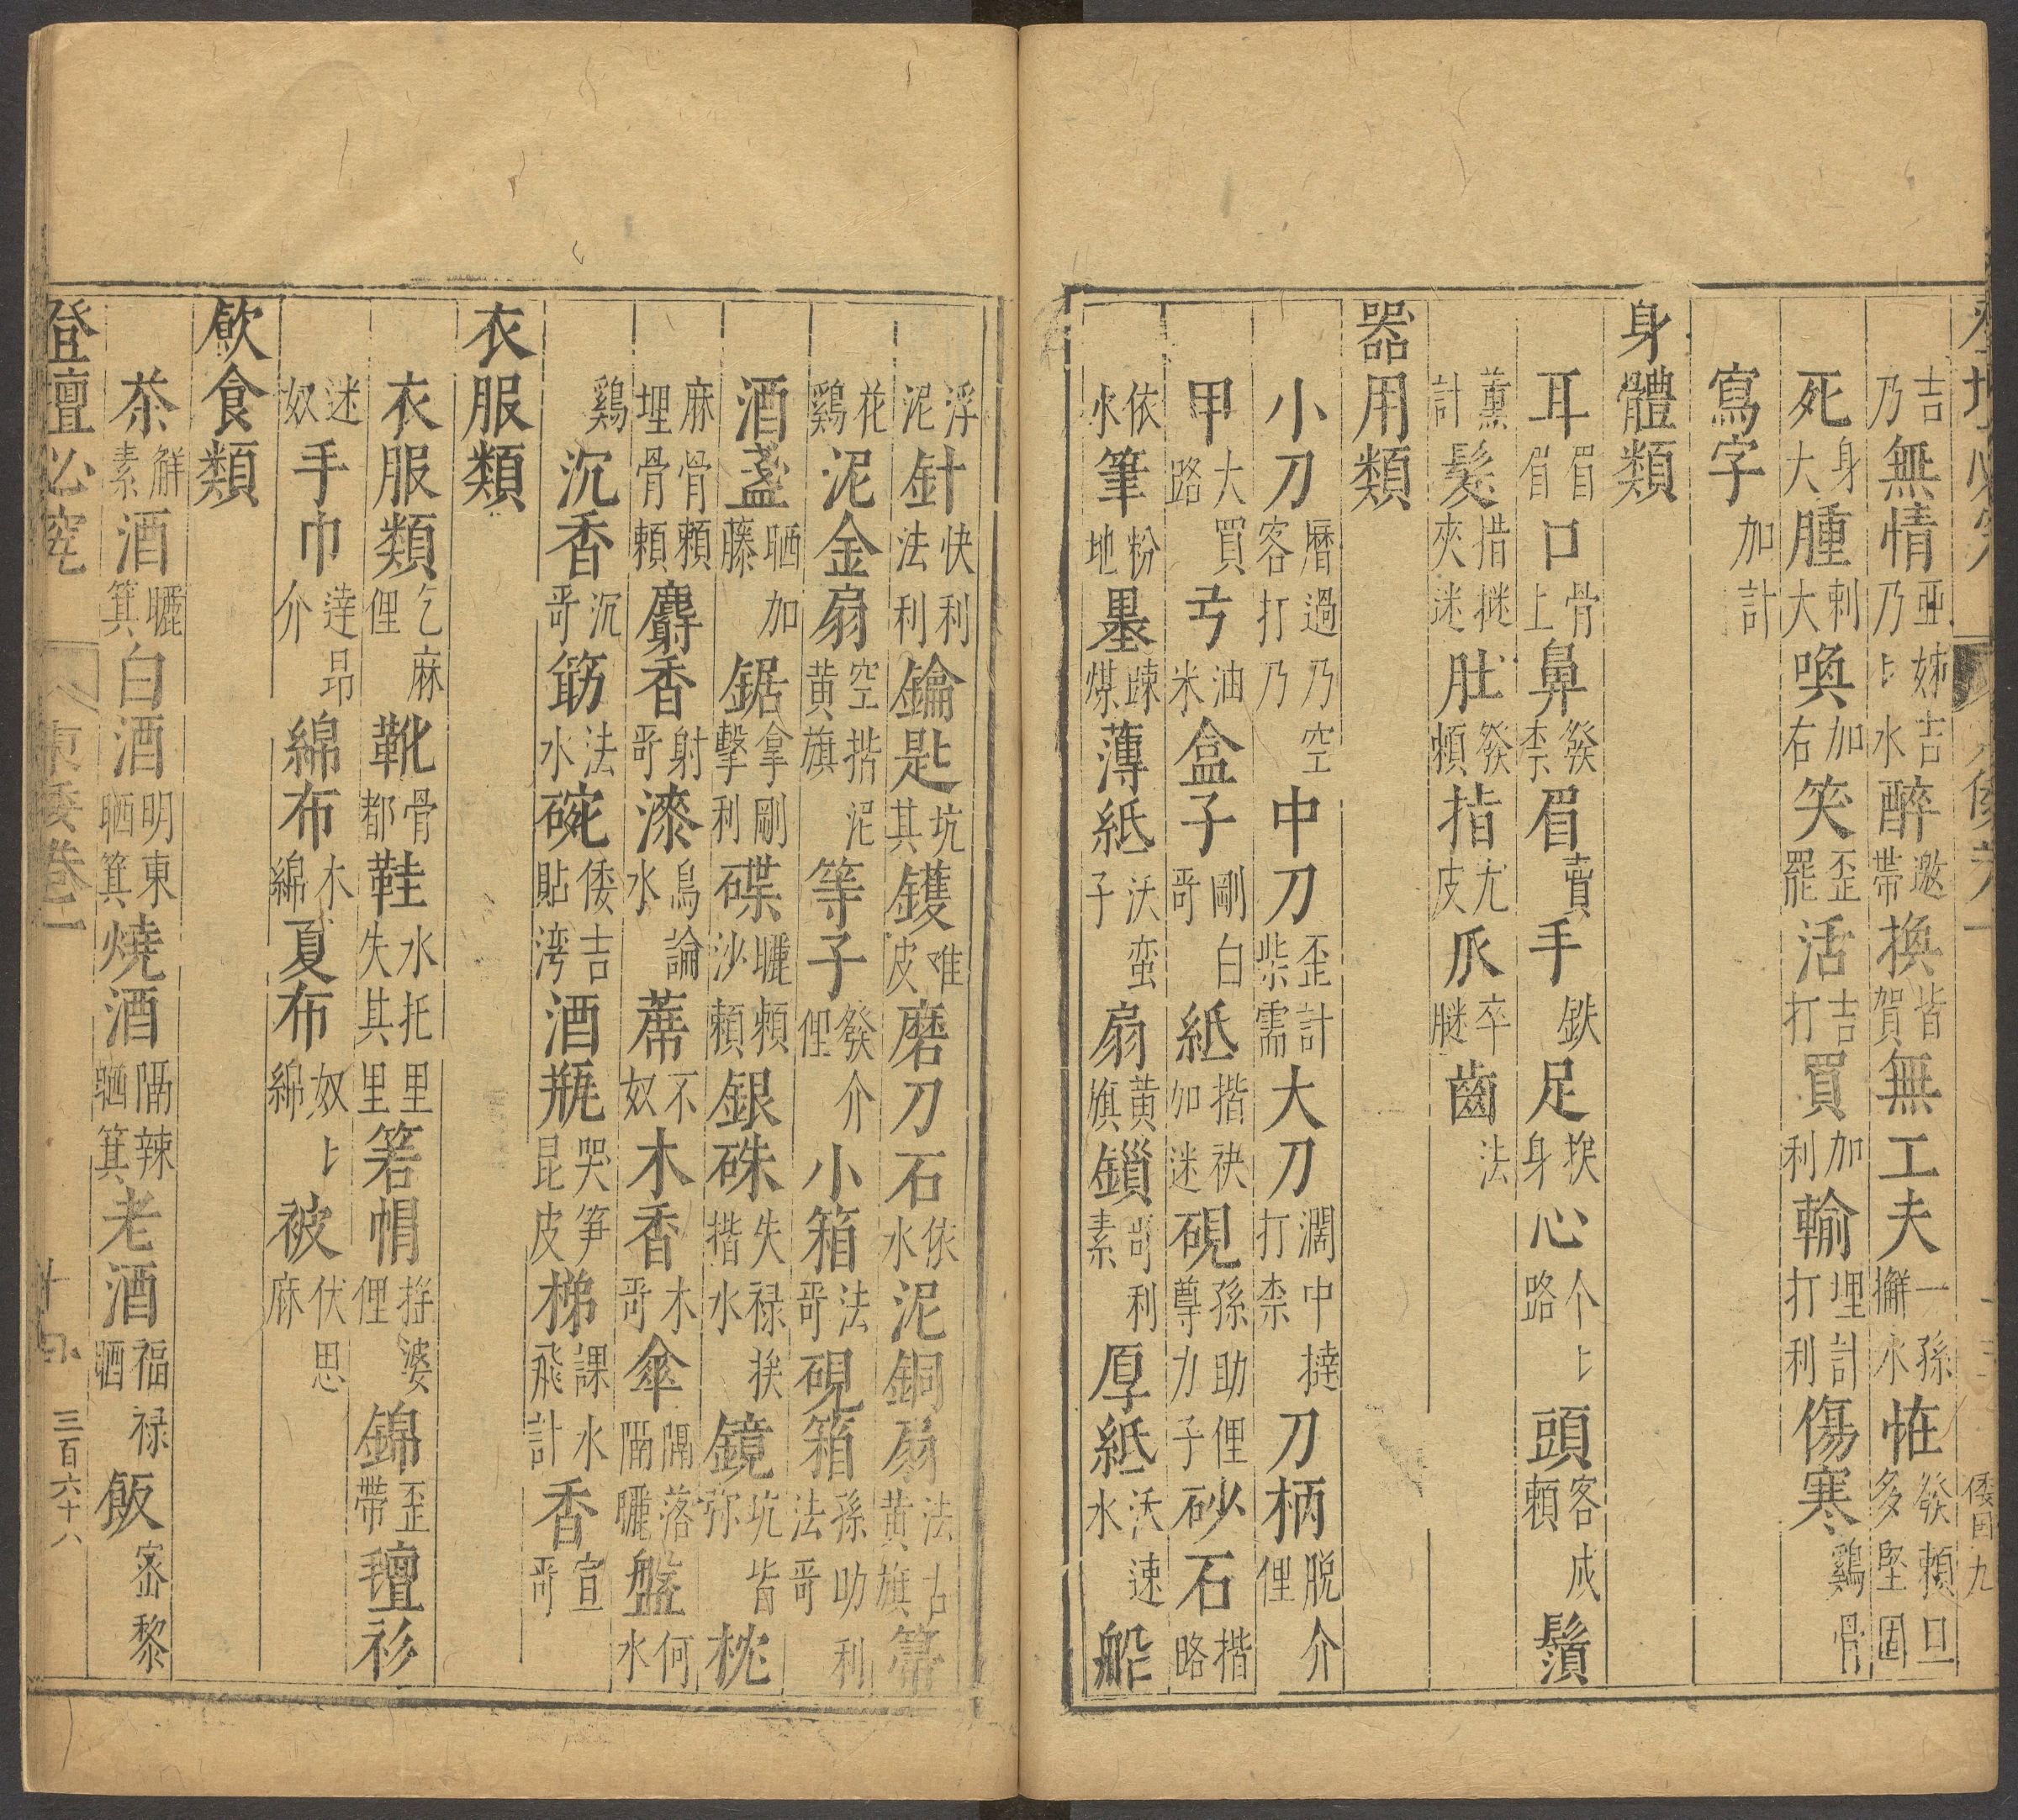 吉乃無情亞乃姊〻吉水醉邀帶換皆賀無工夫一獬孫水恠發多頼堅旦固
死身大腫刺大喚加右笑歪罷活吉打買加利輸埋打計利傷寒鷄骨
寫字加計
身體類
耳眉眉口骨上鼻發柰眉賣手鉄足挨身心个路〻頭客頼成鬚
薰計髮措夾迷肚發頼指尤皮爪卒腿齒法
器用類
小刀曆客過打乃乃空中刀歪柴計需大刀濶打中柰撻刀柄脫俚介
甲大路買弓油米盒子剛哥白紙揩加袂迷硯孫尊助力俚子砂石楷路
依水筆粉地墨踈煤薄紙沃子蛮扇黄旗鎖哥素利厚紙沃水速船
浮泥針快法利利鑰匙坑其鑊难皮磨刀石依水泥銅扇法黄古旗箒
花鷄泥金扇空黄揩旗泥等子發俚介小箱法哥硯箱孫法助哥利
酒盞晒藤加鋸拿擊剛利碟曬沙頼頼銀硃失揩禄水挨鏡坑弥皆枕
麻埋骨骨頼頼麝香射哥漆鳥水論蓆不奴木香木哥傘隔隔落曬盤何水
鷄沉香沉哥筯法水碗倭貼吉湾酒瓶哭昆笋皮梯課飛水計香宣哥
衣服類
衣服類乞俚麻靴骨都鞋水失托其里里箬帽搿俚婆錦歪帶氊衫
迷奴手巾達介昻綿布木綿夏布奴綿〻被伏麻思
飲食類
茶觧素酒曬箕白酒明晒東箕燒酒隔晒辣箕老酒福晒禄飯宻黎
登壇必究
東倭卷二
三百六十八
倭国九